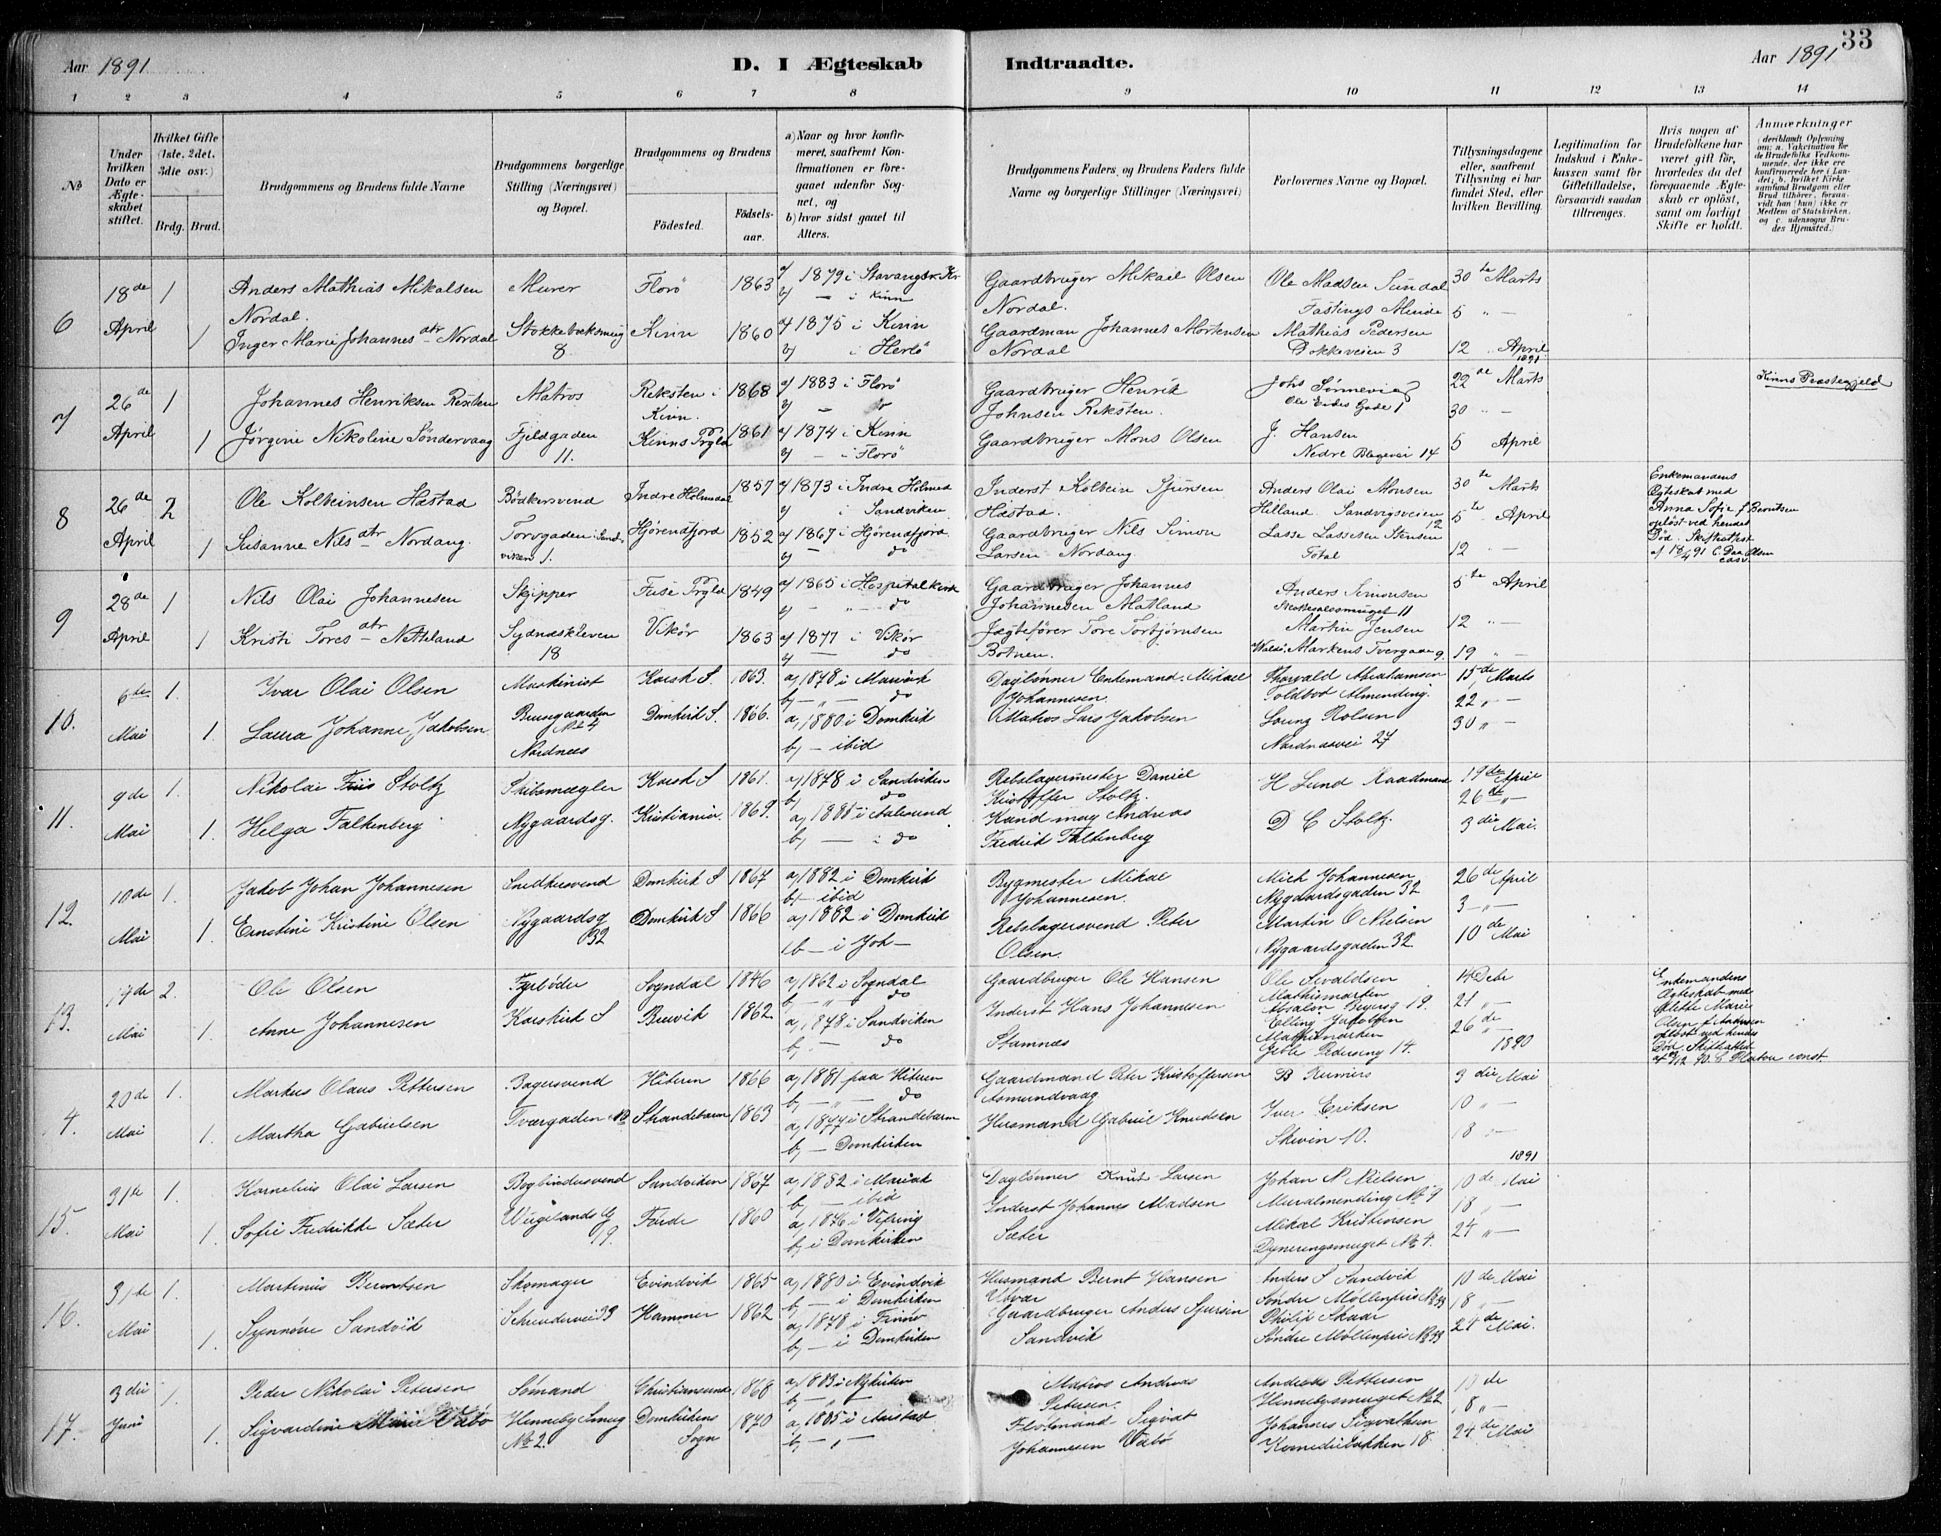 33
Aar 1891
D. I Ægteskab Indtraadte.
Aar 1891
1 2 3 4 5 6 7 8 9 10 11 12 13 14
№
Under hvilken Dato er Ægteskabet stiftet.
Hvilket Gifte (1ste, 2det, 3die osv.)
Brdg. Brud.
Brudgommens og Brudens fulde Navne
Brudgommens borgerlige Stilling (Næringsvei) og Bopæl.
Brudgommens og Brudens
Födested.
Födselsaar.
a) Naar og hvor konfirmeret, saafremt Konfirmationen er foregaaet udenfor Sognet, og
b) hvor sidst gaaet til Alters.
Brudgommens Faders, og Brudens Faders fulde Navne og borgerlige Stillinger (Næringsvei)
Forlovernes Navne og Bopæl.
Tillysningsdagene eller, saafremt Tillysning ei har fundet Sted, efter hvilken Bevilling.
Legitimation for Indskud i Enkekassen samt for Giftetilladelse, forsaavidt saadan tiltrænges.
Hvis nogen af Brudefolkene har været gift før, hvorledes da det foregaaende Ægteskab er oplöst, samt om lovligt Skifte er holdt.
Anmærkninger
6
18de April
1 1
Anders Mathias Mikalsen Nordal.
Inger Marie Johannesdtr Nordal
Murer
8
Florö 1863
Kinn 1860
a) 1879 i Stavangs Kr
b) — i Kinn
a) 1875 i Kinn
b) i Herlö
Gaardbruger Mikael Olsen Nordal.
Gaardman Johannes Mortensen Nordal
Ole Madsen Sundal
Fastings Minde
Mathias Pedersen
Dokkeveien 3
30te Marts
5 " —
12 April
1891
7
26de April
1 1
Johannes Henriksen Rexten
Jørgine Nikoline Søndervaag
Matros
Fjeldgaden 11.
Reksten i Kinn. 1868
Kinns Prgld 1861
a) 1883 i Florö
b) — "
a) 1874 i Kinn
b) — i Florö
Gaardbruger Henrik Johnsen Reksten.
Gaardbruger Mons Olsen
Johs
J. Hansen
Nedre Blegevei 14
22de Marts
30 " —
5 April
Kinns Præstegjeld
8
26de April
2 1
Ole Kolbeinsen Hæstad
Susanne Nilsdtr Nordang.
Bødkersvend
Torvgaden i Sandviken 1.
Indre Holmedal 1857
Hjørendfjord 1852
a) 1873 i Indre Holmed
b) i Sandviken
a) 1867 i Hjørendfjord
b) — do
Inderst Kolbein Sjursen Hæstad.
Gaardbruger Nils Simon Larsen Nordang.
Anders Olai Monsen
Helland Sandvigsveien 12
Lasse Lassesen Stensen
30te Marts
5te April
12 " —
Enkemandens Egteskab med Anna Sofie f. Berntsen opløst ved hendes Død. Skifteattest af 18/4 91
9
28de April
1 1
Nils Olai Johannesen
Kristi Toresdtr Netteland
Skipper
Sydnæskleven 18
Fuse Prgld 1849
Vikør 1863
a) 1865 i Hospitalkirk
b) — " do
a) 1877 i Vikør
b) — do
Gaardbruger Johannes Johannesen Matland
Jægtefører Tore Torbjørnsen Botnen.
Anders Simonsen
Martin Jensen
Markens Tvergade 9.
5te April
12 " —
19 " —
10.
6te Mai
1. 1.
Ivar Olai Olsen
Laura Johanne Jakobsen
Maskinist
№ 4
Nordnæs
Korsk S. 1863.
Domkirk S. 1866.
a) 1878 i Mariæk
b) — " — do
a) 1880 i Domkirk
b) — ibid
Daglønner Enkemand Mikael Johannesen.
Matros Lars Jakobsen
Thorvald Abrahamsen
Toldbod Almending.
Lorenz Rolsen
Nordnæsvei 27
15de Marts
22 " —
30 " —
11.
9de Mai
1. 1.
Nikolai Friis Stoltz
Helga Falkenberg
Skibsmægler
Nygaardsg.
Korsk S 1861.
Kristiania. 1869.
a) 1878 i Sandviken
b) do
i Aalesund
b) — : do
Rebslagermester Daniel Kristoffer Stoltz.
Kand. mag Andreas Fredrik Falkenberg
H Lund Raadmand
D C Stoltz.
19de April
26de " —
3die Mai.
12.
10de Mai
1. 1.
Jakob Johan Johannesen
Ernstine Kristine Olsen
Snedkersvend
Nygaardsg 32
Domkirk S 1867
Domkirk S 1866
a) 1882 i Domkirk
b) — ibid
a) 1882 i Domkirk
b — i Joh —
Bygmester Mikal Johannesen.
Rebslagersvend Peter Olsen.
Mich Johannesen
Nygaardsgaden 32
Martin O Nielsen
Nygaardsgaden 32
26de April
3 — " —
10de Mai
13.
17de Mai
2. 1.
Ole Olsen
Anne Johannesen
Fyrbøder
Korskirk S
Sogndal 1846
Bruvik 1862.
a) 1862 i Sogndal
b) — " do
a) 1878 i Sandviken
b) — do
Gaardbruger Ole Hansen
Inderst Hans Johannesen Stamnæs
Ole Sivaldsen
Absalon Beyersg 19.
Elling Jakobsen
Geble Pedersensg 14.
14 Debr
21 " —
26de " —
1890
Enkemandens Ægteskab med Olsen opløst ved hendes Død. Skifteattest
4.
20de Mai
1. 1.
Markus Olaus Pettersen
Martha Gabrielsen
Bagersvend
Tværgaden 12
Hiteren 1866
Strandebarm 1863
a) 1881 paa Hiteren
b) — " — do
a) 1877 i Strandebarm
b) — Domkirken
Gaardmand Peter Kristoffersen Asmundvaag
Husmand Gabriel Knudsen
B Reimers
Iver Eriksen
Skiven 10.
3die Mai
10 " —
18 " —
1891
15.
31te Mai
1. 1.
Kornelius Olai Larsen
Sofie Fredrikke Sæter
Bogbindersvend
Wiigelands G 19.
Sandviken 1867
Førde 1860
a) 1882 i Mariæk
b) — ibid
a) 1876 i Vefring
b) i Domkirken
Daglønner Knut Larsen
Inderst Johannes Madsen Sæter
Johan N Nielsen
Muralmending № 9
Mikal Kristensen
Dyneringsmuget № 4.
10de Mai
18 " —
24 " —
16.
31te Mai
1. 1.
Martinus Berntsen
Synnøve Sandvik
Skomager
33
Evindvik 1865
Hammer 1862
a) 1880 i Evindvik
b) — i Domkirken
b) — i Domkirken
Husmand Bernt Hansen Utvær
Gaardbruger Anders Sjursen Sandvik
Anders S Sandvik
Søndre Møllenpris № 39
Philip Skaar
Søndre Møllenpris № 39
10de Mai
18 " —
24de Mai.
17.
3die Juni
1. 1.
Peder Nikolai Petersen
Sigvardine Marie Vabø
Sømand
Henneby Smug № 2.
Christianssund 1868
Domkirkens Sogn 1870
a) 1883 i Nykirken
b) — " —
a) 1885 i Aarstad
b) — " —
Matros Andreas Petersen.
Flotmand Sigvat Johannesen Vabø
Andreas Pettersen
Hennebysmuget № 2
Johannes Sigvaldsen
Komediebakken 18.
10de
18 " —
24de Mai